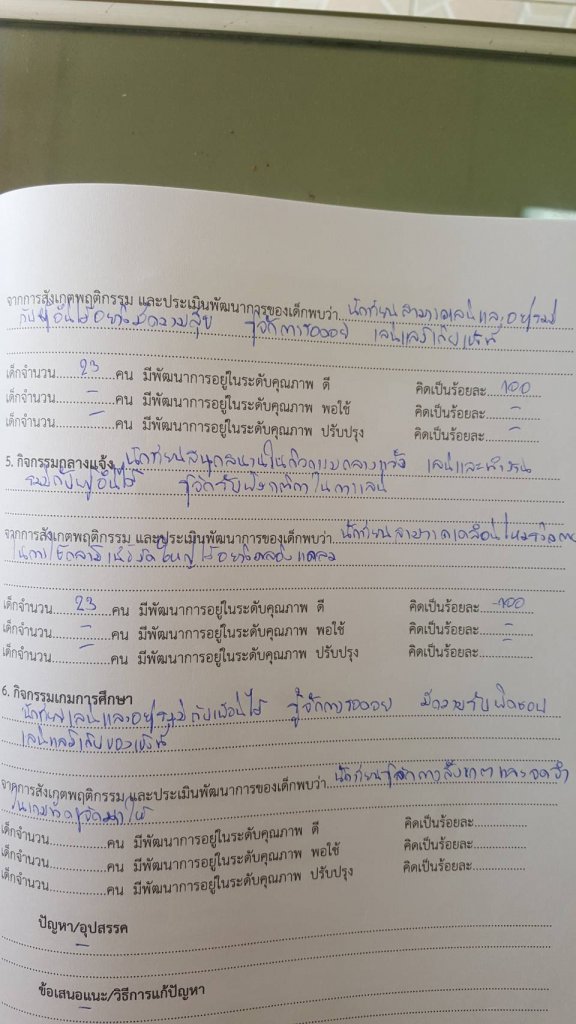 จากการสังเกตพฤติกรรม และประเมินพัฒนาการของเด็กพบว่า..นักเรียนสามารถเล่นและอยู่ร่วม
กับผู้อื่นได้อย่างมีความสุข รู้จักการรอคอย เล่นแล้วเก็บเข้าที่
เด็กจำนวน.....23.....คน มีพัฒนาการอยู่ในระดับคุณภาพ ดี คิดเป็นร้อยละ..100
เด็กจำนวน.....-.....คน มีพัฒนาการอยู่ในระดับคุณภาพ พอใช้ คิดเป็นร้อยละ.....-.....
เด็กจำนวน.....-.....คน มีพัฒนาการอยู่ในระดับคุณภาพ ปรับปรุง คิดเป็นร้อยละ.....-.....
5. กิจกรรมกลางแจ้ง นักเรียนสนุกสนานในกิจกรรมกลางแจ้ง เล่นและทำงาน
ร่วมกับผู้อื่นได้ รู้จักรับฟังกติกาในการเล่น
จากการสังเกตพฤติกรรม และประเมินพัฒนาการของเด็กพบว่า..นักเรียนสามารถเคลื่อนไหวร่างกาย
ในการใช้กล้ามเนื้อมัดใหญ่ได้อย่างคล่องแคล่ว
เด็กจำนวน.....23.....คน มีพัฒนาการอยู่ในระดับคุณภาพ ดี คิดเป็นร้อยละ..100
เด็กจำนวน.....-.....คน มีพัฒนาการอยู่ในระดับคุณภาพ พอใช้ คิดเป็นร้อยละ.....-.....
เด็กจำนวน.....-.....คน มีพัฒนาการอยู่ในระดับคุณภาพ ปรับปรุง คิดเป็นร้อยละ.....-.....
6. กิจกรรมเกมการศึกษา
นักเรียนเล่นและอยู่ร่วมกับเพื่อนได้ รู้จักการรอคอย มีความรับผิดชอบ
เล่นแล้วเก็บของเข้าที่
จากการสังเกตพฤติกรรม และประเมินพัฒนาการของเด็กพบว่า..นักเรียนรู้จักการสังเกตและจดจำ
ในเกมที่ครูจัดมาให้
เด็กจำนวน..............คน มีพัฒนาการอยู่ในระดับคุณภาพ ดี คิดเป็นร้อยละ.............
เด็กจำนวน..............คน มีพัฒนาการอยู่ในระดับคุณภาพ พอใช้ คิดเป็นร้อยละ.............
เด็กจำนวน..............คน มีพัฒนาการอยู่ในระดับคุณภาพ ปรับปรุง คิดเป็นร้อยละ.............
ปัญหา/อุปสรรค
-
ข้อเสนอแนะ/วิธีการแก้ปัญหา
-